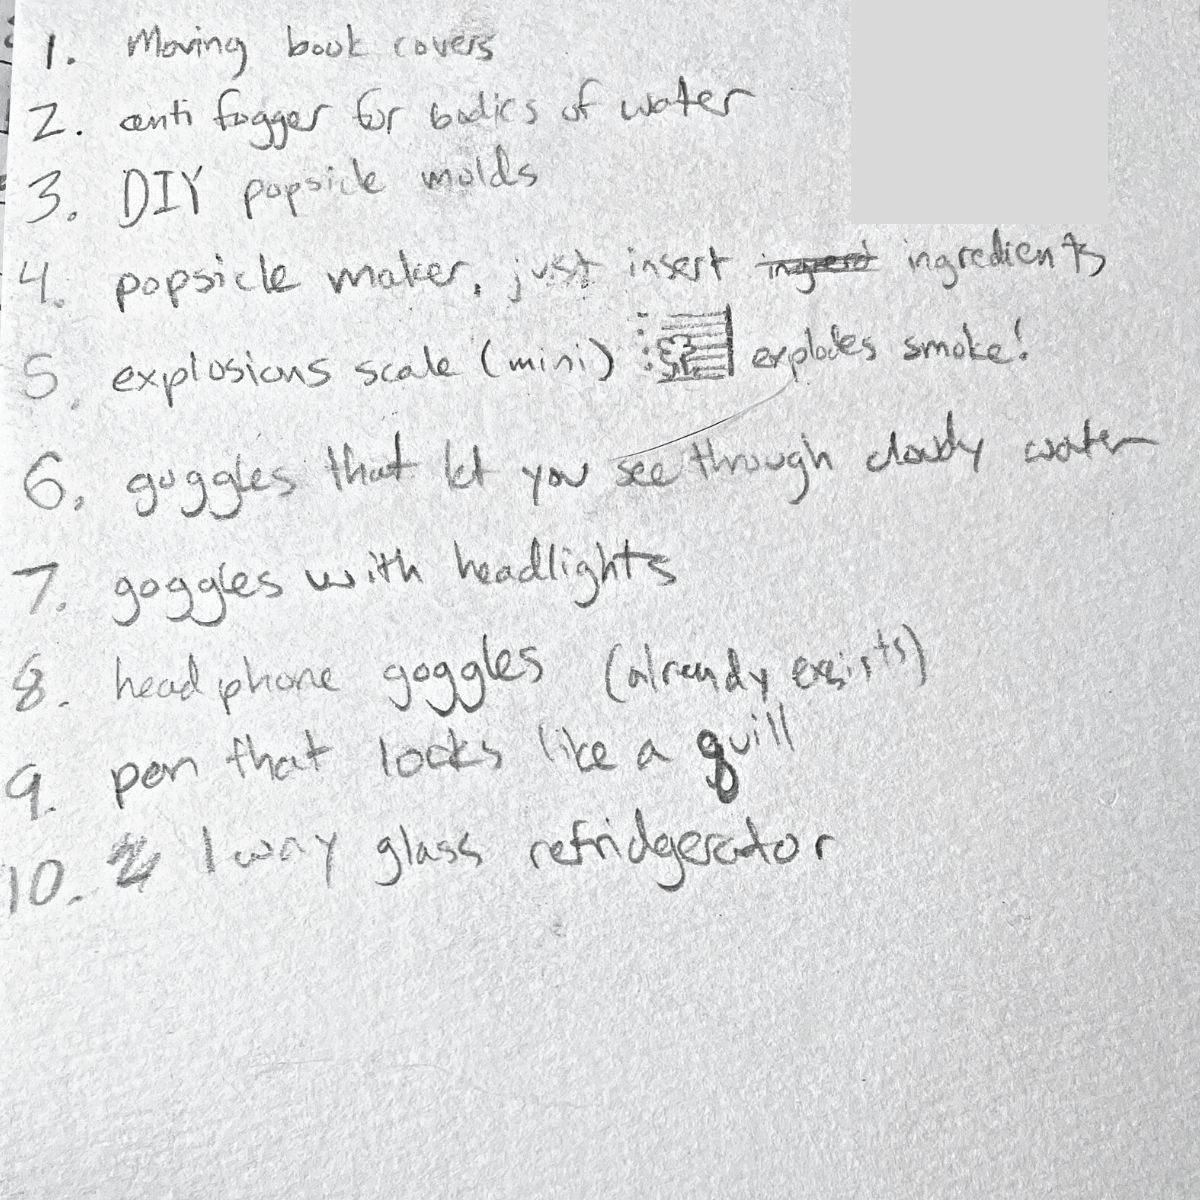 1. Moving book covers
2. anti fogger for bodies of water
3. DIY popsicle molds
4. popsicle maker, just insert ingredients
5. explosions scale (mini) explodes smoke!
6. goggles that let you see through cloudy water
7. goggles with headlights
8. headphone goggles (already exsists)
9. pen that looks like a quill
10. 1 way glass refridgerator